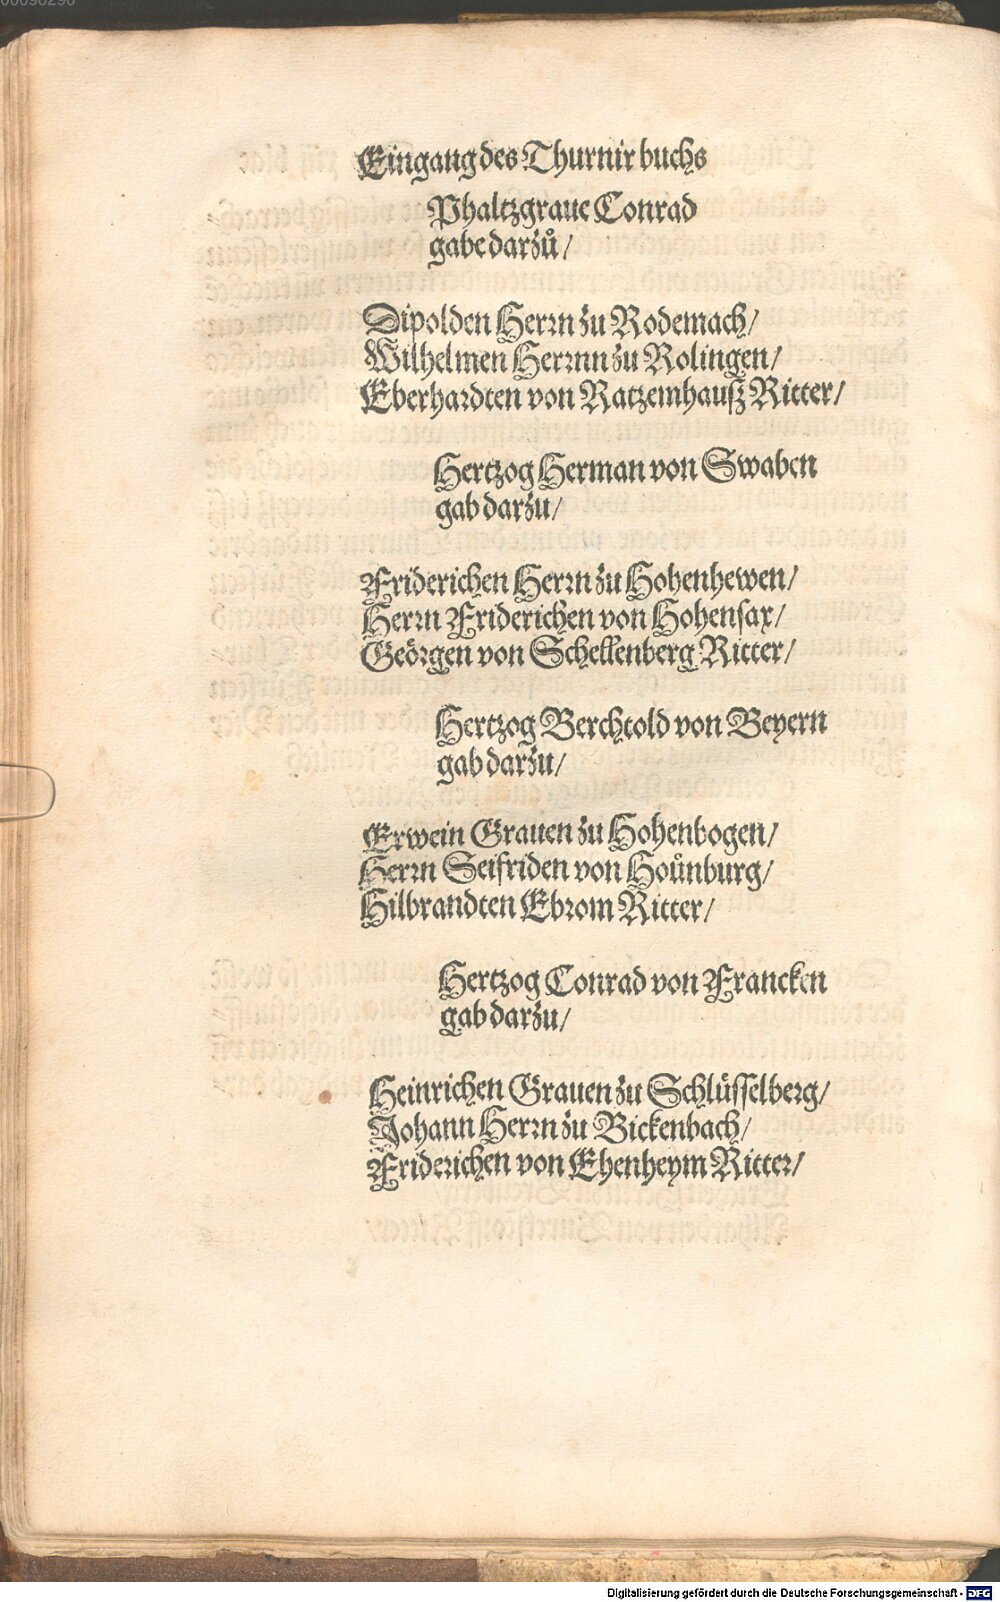 00090290
Eingang des Thurnir buchs
Phaltzgraue Conrad
gabe darzů/
Dipolden Herrn zu Rodemach/
Wilhelmen Herrnn zu Rolingen/
Eberhardten von Ratzemhausz Ritter/
Hertzog Herman von Swaben
gab darzu/
Friderichen Herrn zu Hohenhewen/
Herrn Friderichen von Hohensax/
Geörgen von Schellenberg Ritter/
Hertzog Berchtold von Beyern
gab darzu/
Erwein Grauen zu Hohenbogen/
Herrn Seifriden von Hoůnburg/
Hilbrandten Ebrom Ritter/
Hertzog Conrad von Francken
gab darzu/
Heinrichen Grauen zu Schlüsselberg/
Johann Herrn zu Bickenbach/
Friderichen von Ehenheym Ritter/
Digitalisierung gefördert durch die Deutsche Forschungsgemeinschaft - DFG